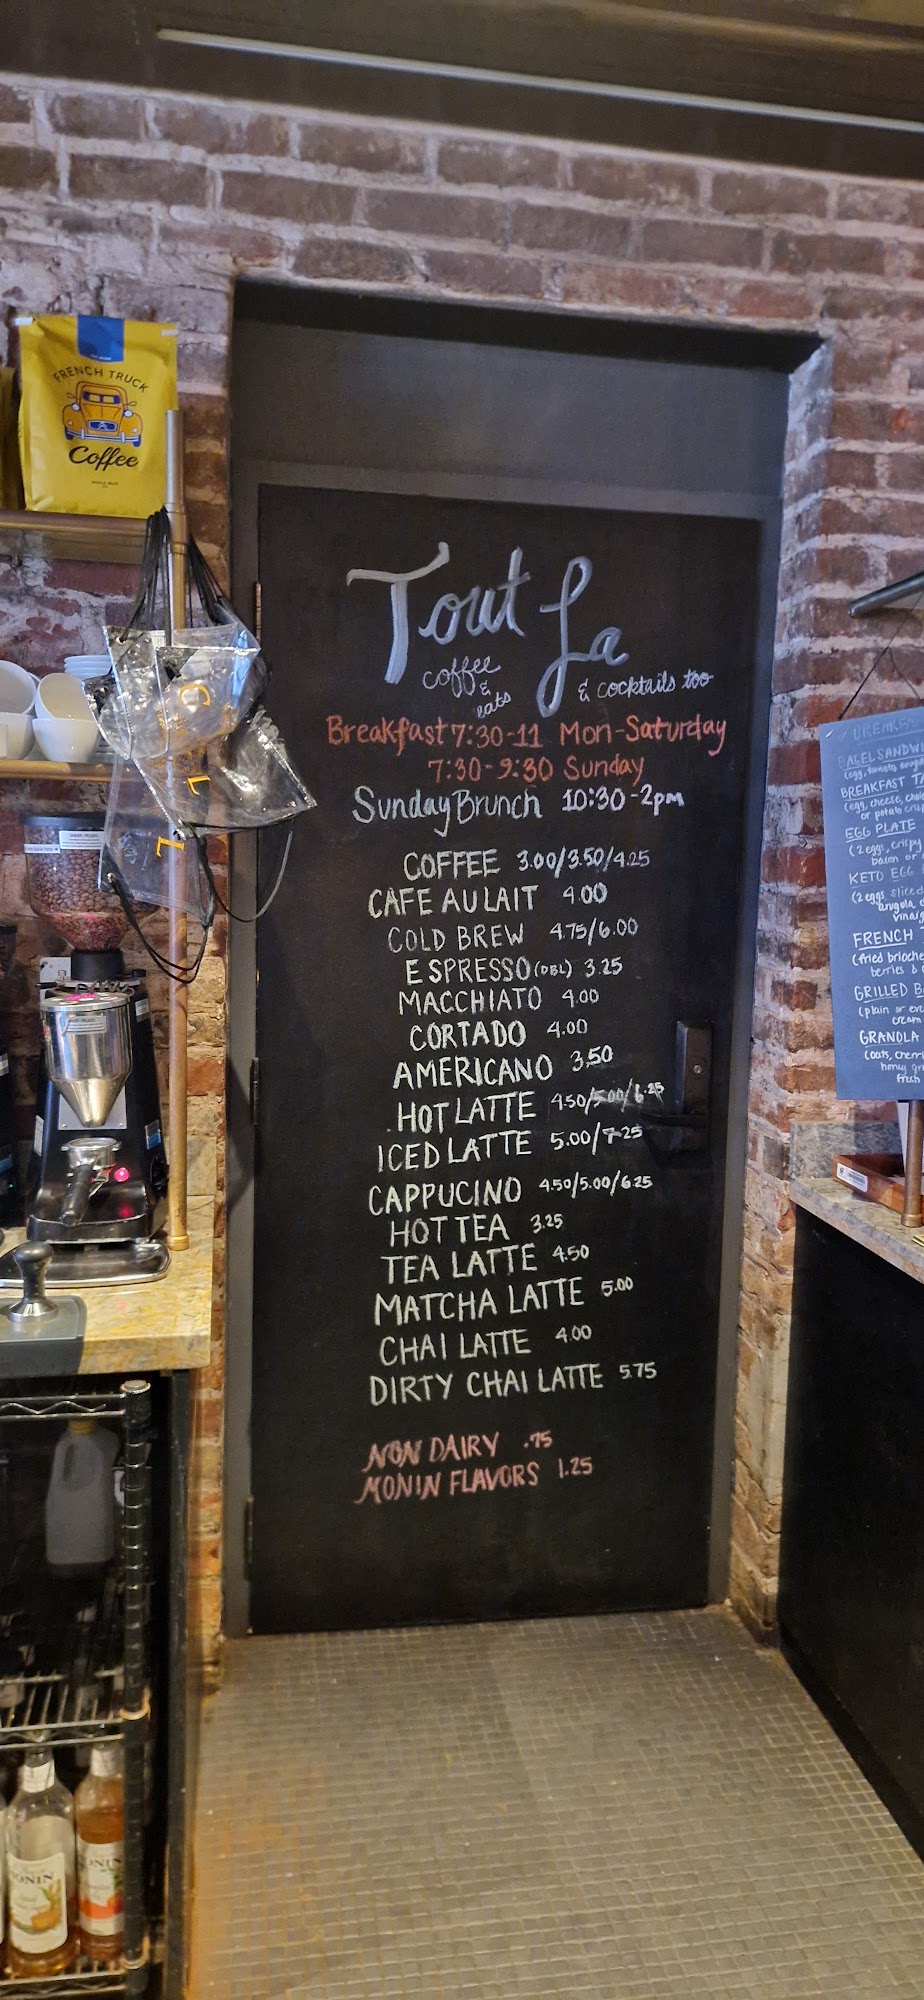 FRENCH TRUCK
Coffee
WHOLE BEAN
Tout La
coffee
&
eats
& cocktails too
Breakfast 7:30-11 Mon-Saturday
7:30-9:30 Sunday
Sunday Brunch 10:30-2pm
COFFEE 3.00/3.50/4.25
CAFE AU LAIT 4.00
COLD BREW 4.75/6.00
ESPRESSO (DBL) 3.25
MACCHIATO 4.00
CORTADO 4.00
AMERICANO 3.50
HOT LATTE 4.50/5.00/6.25
ICED LATTE 5.00/7.25
CAPPUCINO 4.50/5.00/6.25
HOT TEA 3.25
TEA LATTE 4.50
MATCHA LATTE 5.00
CHAI LATTE 4.00
DIRTY CHAI LATTE 5.75
NON DAIRY .75
MONIN FLAVORS 1.25
BAGEL SANDW
(egg, tomato, arugu
BREAKFAST T
(egg, cheese, choi
or potato, crisp
EGG PLATE
(2 eggs, crispy
bacon or
KETO EGG
(2 eggs sliced
arugula,
vinaig
FRENCH T
(fried brioche
berries &
GRILLED BA
(plain or eve
cream
GRANOLA
(oats, cherri
honey, gre
fresh
MONIN
MONIN